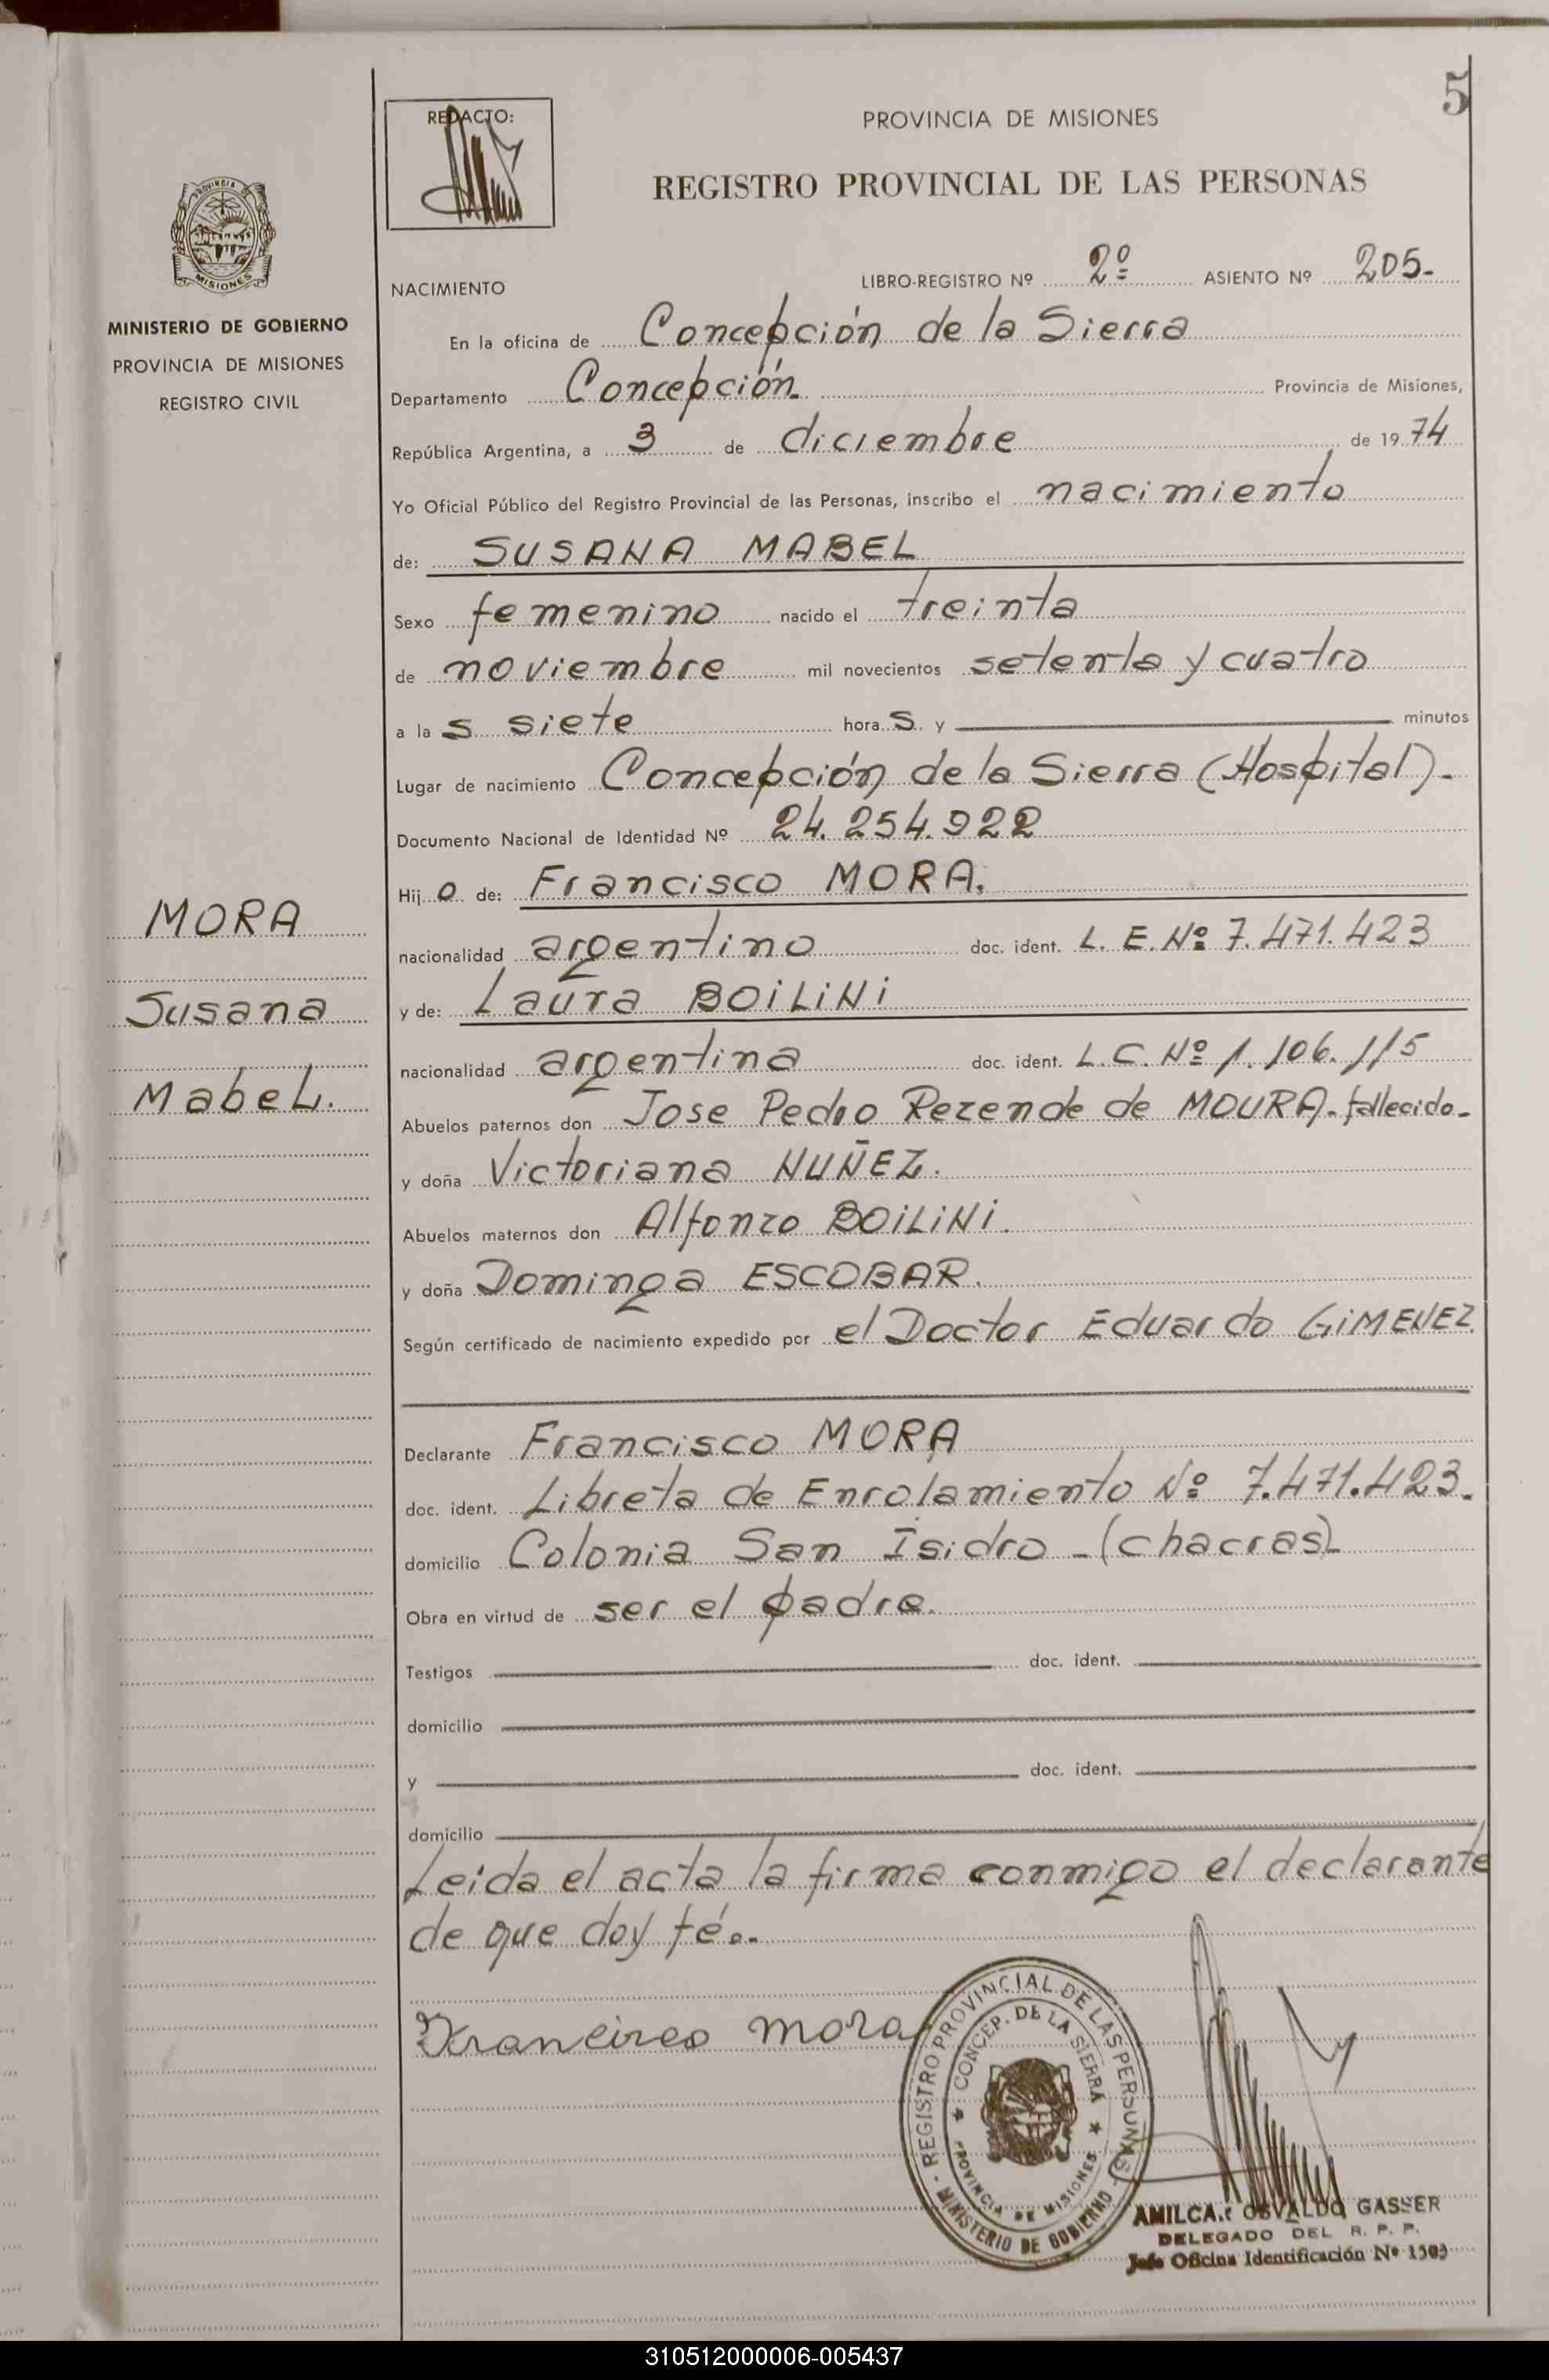 5
REDACTO:
PROVINCIA DE MISIONES
REGISTRO PROVINCIAL DE LAS PERSONAS
PROVINCIA DE
MISIONES
MINISTERIO DE GOBIERNO
PROVINCIA DE MISIONES
REGISTRO CIVIL
NACIMIENTO LIBRO-REGISTRO Nº 2º ASIENTO Nº 205-
En la oficina de Concepción de la Sierra
Departamento Concepción Provincia de Misiones,
República Argentina, a 3 de diciembre de 1974
Yo Oficial Público del Registro Provincial de las Personas, inscribo el nacimiento
de: SUSANA MABEL
Sexo femenino nacido el treinta
de noviembre mil novecientos setenta y cuatro
a las siete horas y minutos
Lugar de nacimiento Concepción de la Sierra (Hospital)-
Documento Nacional de Identidad Nº 24.254.922
Hijo de: Francisco MORA.
nacionalidad argentino doc. ident. L. E. Nº 7.471.423
y de: Laura BOiLiNi
nacionalidad argentina doc. ident. L. C. Nº 1.106.115
Abuelos paternos don Jose Pedro Rezende de MOURA- fallecido-
y doña Victoriana NUÑEZ.
Abuelos maternos don Alfonzo BOiLiNi.
y doña Dominga ESCOBAR.
Según certificado de nacimiento expedido por el Doctor Eduardo GiMENEZ.
Declarante Francisco MORA
doc. ident. Libreta de Enrolamiento Nº 7.471.423.
domicilio Colonia San Isidro - (chacras)-
Obra en virtud de ser el padre.
Testigos doc. ident.
domicilio
y doc. ident.
domicilio
Leida el acta la firma conmigo el declarante
de que doy fé..
MORA
Susana
Mabel.
Francisco mora
REGISTRO PROVINCIAL DE LAS PERSONAS
- MINISTERIO DE GOBIERNO -
★ CONCEP. DE LA SIERRA ★
PROVINCIA DE MISIONES
AMILCAR OSVALDO GASSER
DELEGADO DEL R. P. P.
Jefe Oficina Identificación Nº 1503
310512000006-005437